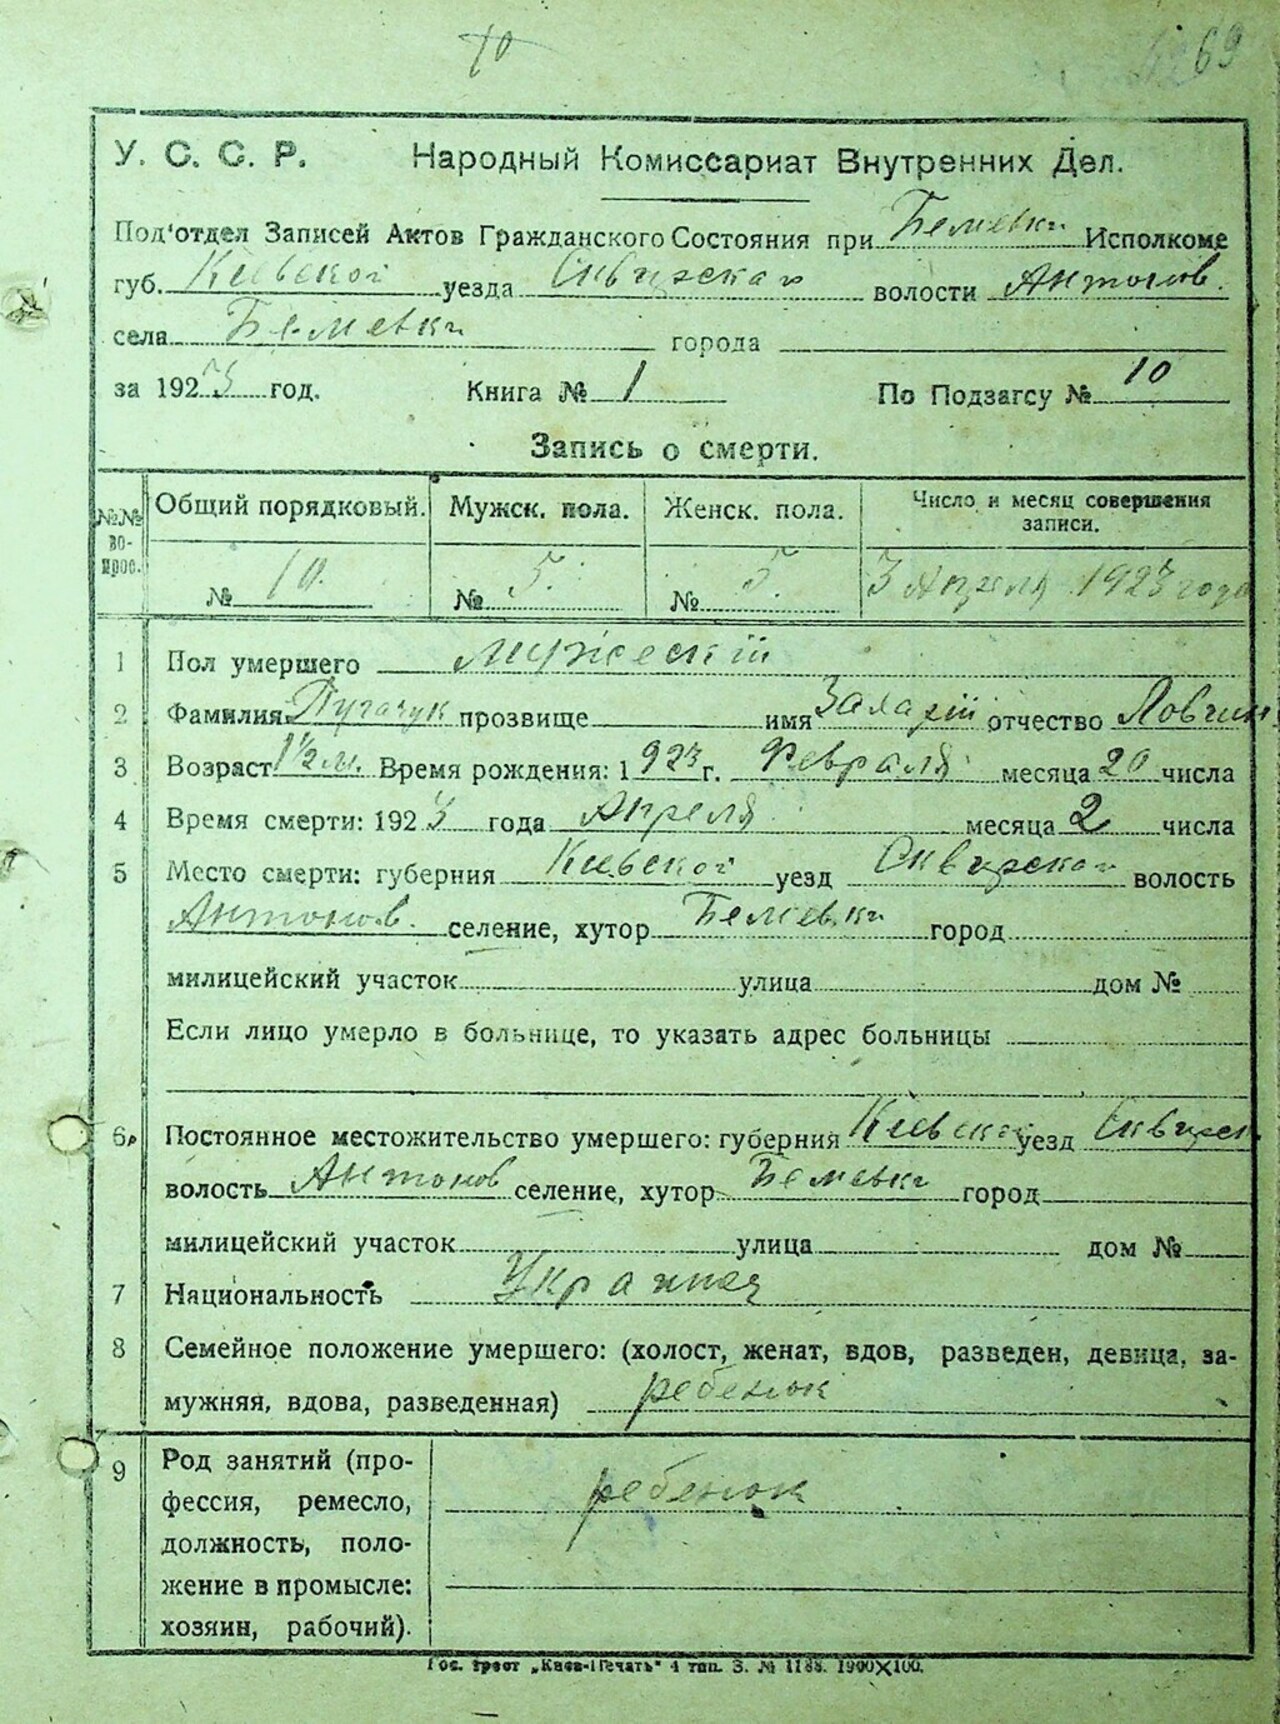 10
69
У. С. С. Р. Народный Комиссариат Внутренних Дел.
Под'отдел Записей Актов Гражданского Состояния при Исполкоме
губ. Киевской уезда Сквирской волости Антонов.
села города
за 1923 год. Книга № 1 По Подзагсу № 10
Запись о смерти.
№№ вопрос. Общий порядковый. Мужск. пола. Женск. пола. Число и месяц совершения записи.
№ 10. № 5. № 5. 3 Апреля 1923 года
1 Пол умершего мужескій
2 Фамилия прозвище имя Захарій отчество
3 Возраст 1 1/2 м. Время рождения: 1923 г. Февраля месяца 20 числа
4 Время смерти: 1923 года Апреля месяца 2 числа
5 Место смерти: губерния Киевской уезд Сквирской волость
Антонов. селение, хутор город
милицейский участок улица дом №
Если лицо умерло в больнице, то указать адрес больницы
6 Постоянное местожительство умершего: губерния Киевской уезд Сквирск
волость Антонов селение, хутор город
милицейский участок улица дом №
7 Национальность
8 Семейное положение умершего: (холост, женат, вдов, разведен, девица, за-
мужняя, вдова, разведенная) ребенок
9 Род занятий (про-
фессия, ремесло, ребенок
должность, поло-
жение в промысле:
хозяин, рабочий).
Гос. трест „Киев-Печать" 4 тип. З. № 1188. 1900×100.